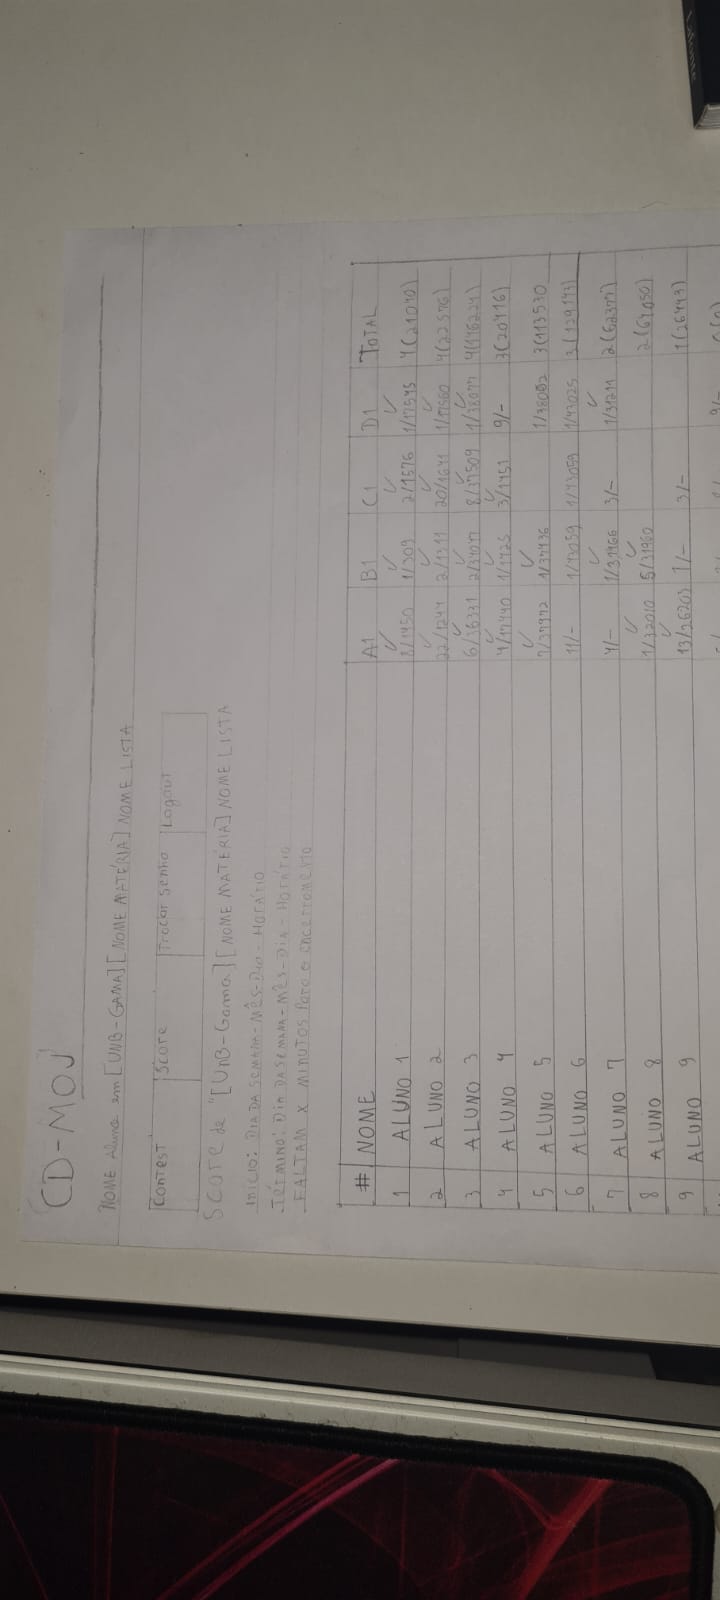 CD-MOJ
NOME Aluno em [UNB-GAMA][NOME MATÉRIA] NOME LISTA
Contest Score Trocar senha Logout
Score de "[UnB-Gama][NOME MATÉRIA] NOME LISTA
Início: DIA DA SEMANA-MÊS-DIA-HORÁRIO
TÉRMINO: DIA DA SEMANA-MÊS-DIA-HORÁRIO
FALTAM X MINUTOS Para o encerramento
# NOME A1 B1 C1 D1 TOTAL
1 ALUNO 1 8/1450 1/309 2/1576 1/17545 4(21040)
2 ALUNO 2 22/1244 2/1311 20/1641 1/17560 4(22576)
3 ALUNO 3 6/36331 2/37077 8/37509 1/38077
4 ALUNO 4 4/17440 1/1425 3/1451 9/- 3(20416)
5 ALUNO 5 1/37436 1/38092 3(113530
6 ALUNO 6 11/- 1/43059 1/43059 1/43025
7 ALUNO 7 4/- 1/31166 3/- 1/31211 2(62377)
8 ALUNO 8 1/32010 5/31960 2(64050)
9 ALUNO 9 13/26203 3/- 1(26443)